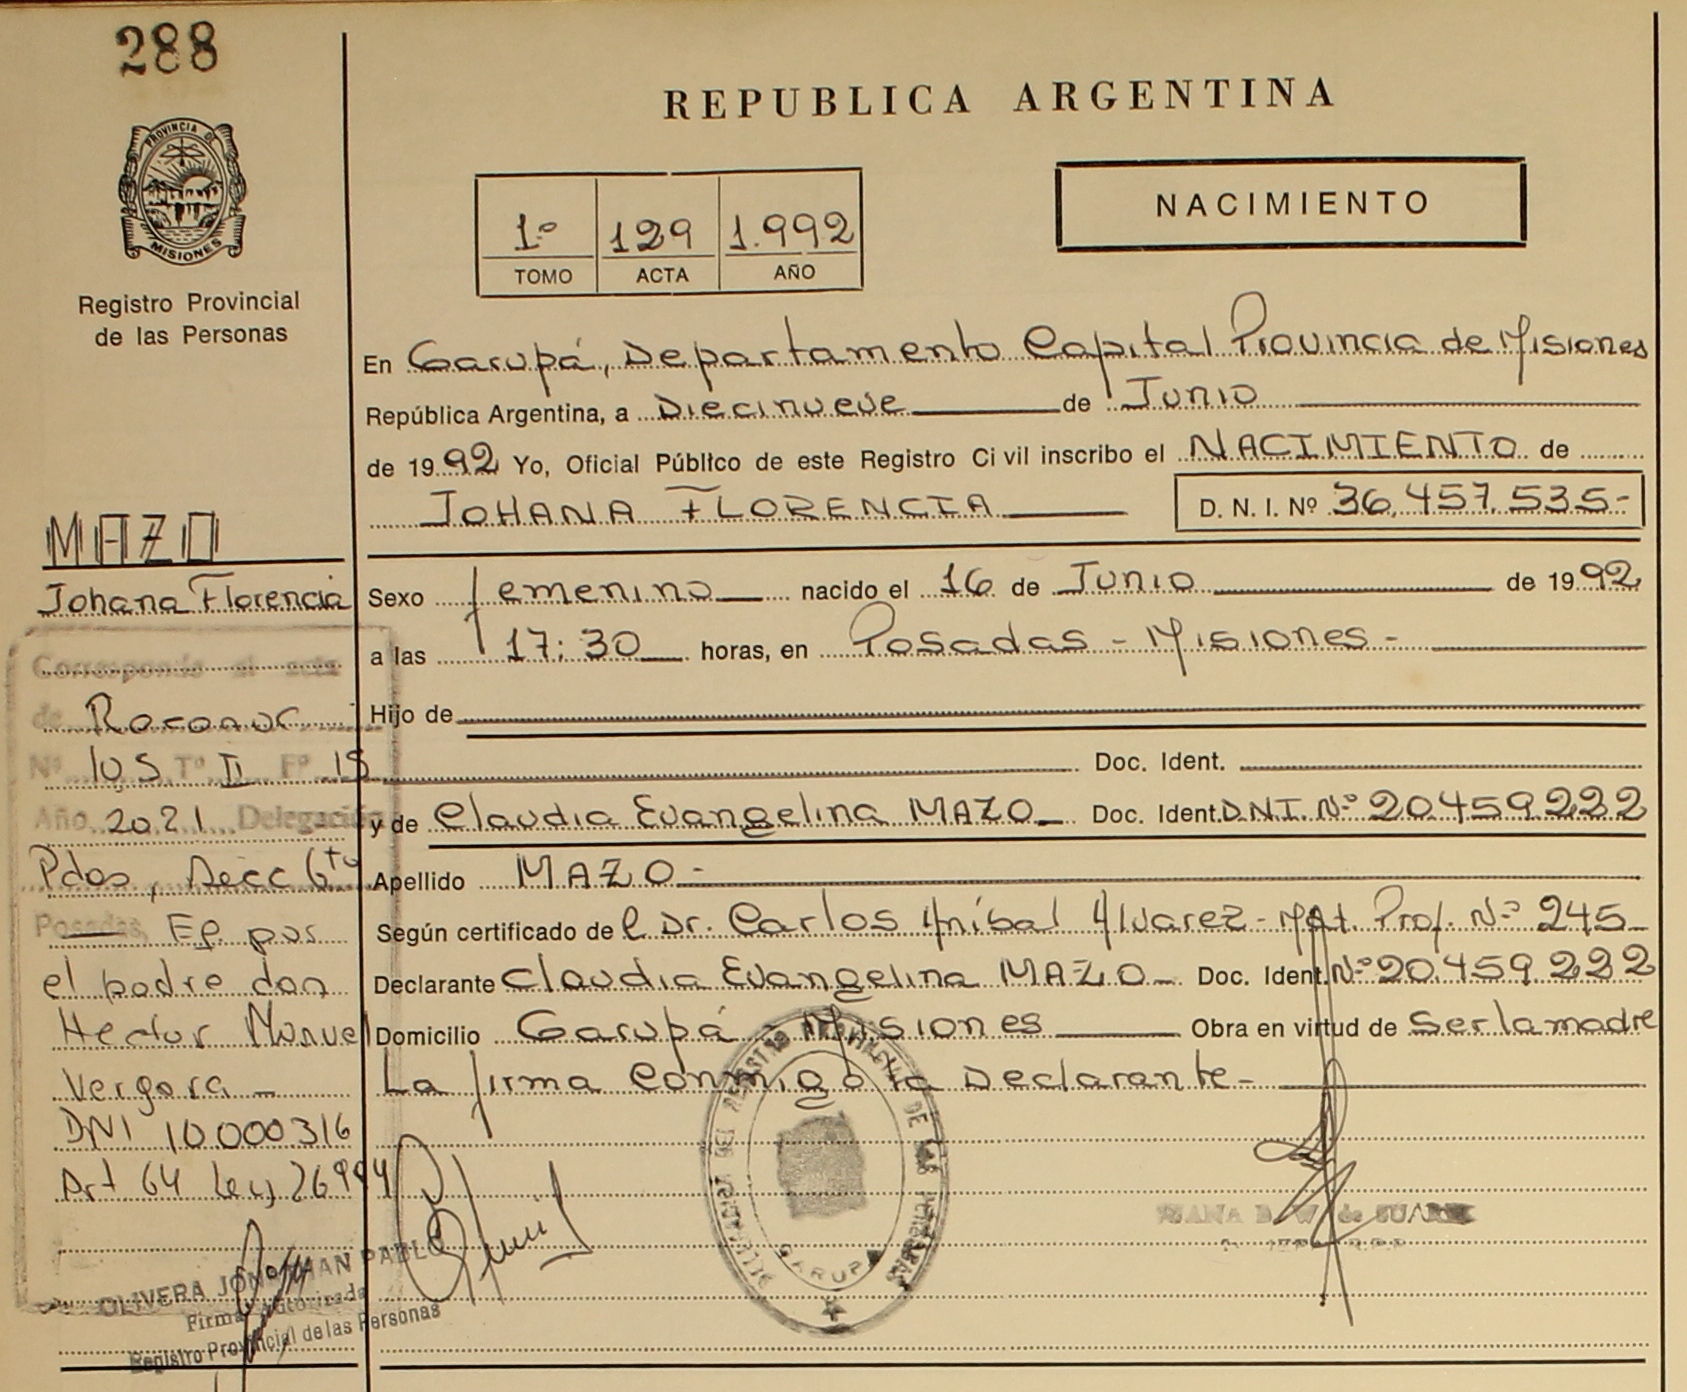 288
REPUBLICA ARGENTINA
PROVINCIA DE
MISIONES
Registro Provincial
de las Personas
1º 129 1.992
TOMO ACTA AÑO
NACIMIENTO
En Garupá, Departamento Capital Provincia de Misiones
República Argentina, a Diecinueve de Junio
de 1992 Yo, Oficial Público de este Registro Civil inscribo el NACIMIENTO de
JOHANA FLORENCIA D. N. I. Nº 36.457.535-
MAZO
Johana Florencia
Sexo femenino nacido el 16 de Junio de 1992
a las 17:30 horas, en Posadas - Misiones -
Hijo de
Doc. Ident.
y de Claudia Evangelina MAZO Doc. Ident. D.N.I. Nº 20.459.222
Apellido MAZO -
Según certificado del Dr. Carlos Aníbal Alvarez - Mat. Prof. Nº 245
Declarante Claudia Evangelina MAZO Doc. Ident. Nº 20.459.222
Domicilio Garupá - Misiones Obra en virtud de Ser la madre
La firma Conmigo la Declarante -
Corresponde al acta
de
Nº 105 Tº II Fº 15
Año 2021 Delegación
Pdas, Secc 6ta
Posadas, Ef. por
el padre don
Hector Manuel
Vergara -
DNI 10.000316
Art 64 Ley 26994
OLIVERA JONATHAN PABLO
Firma Autorizada
Registro Provincial de las Personas
DELEGACION DEL REGISTRO PROVINCIAL DE LAS PERSONAS
GARUPA
de SUAREZ